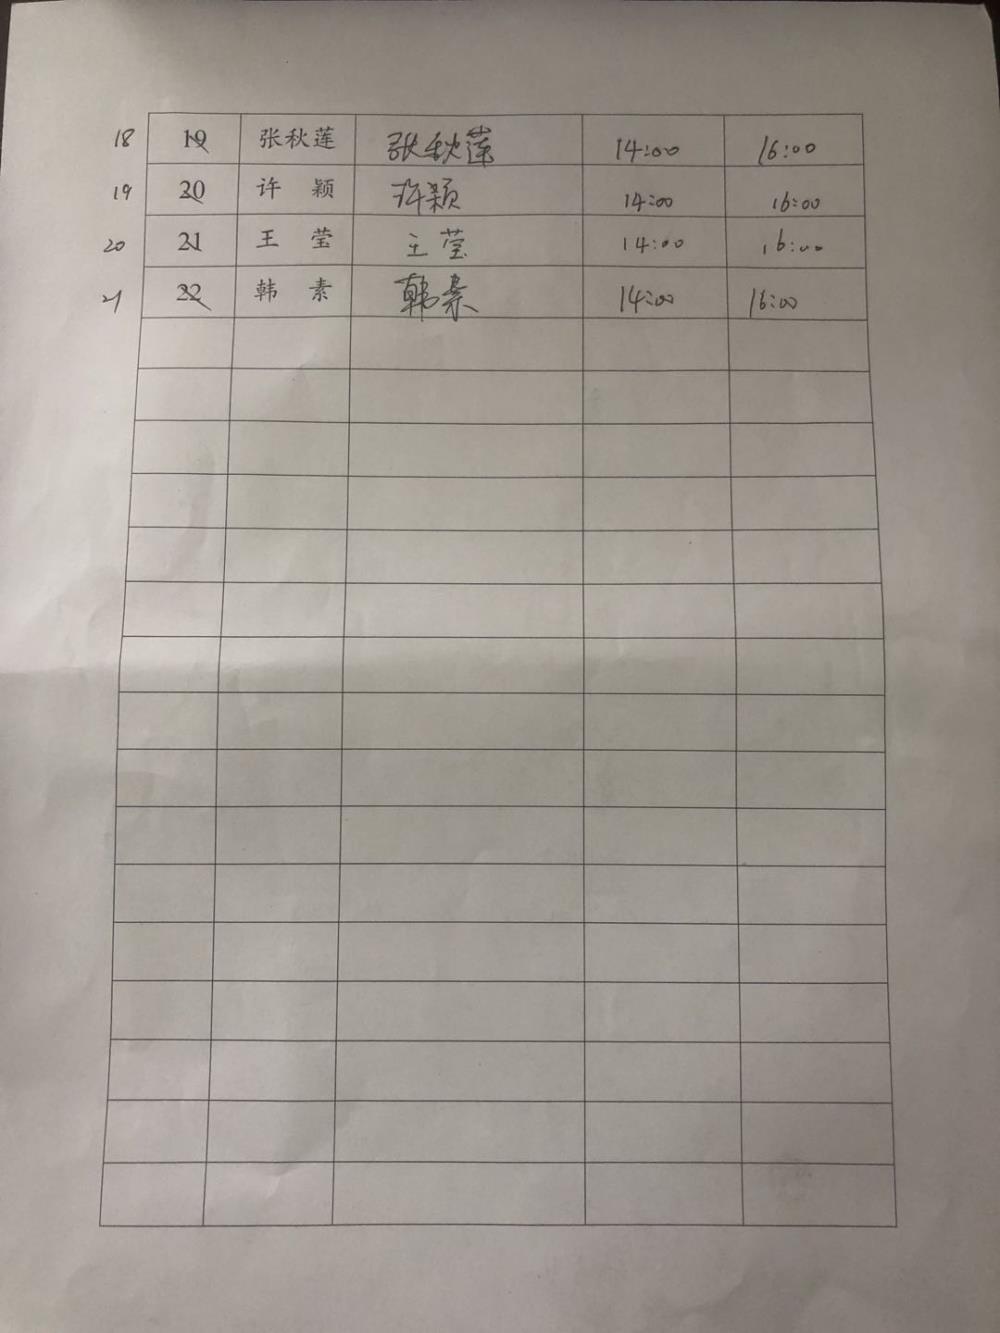 18 19 张秋莲 张秋莲 14:00 16:00
19 20 许 颖 许颖 14:00 16:00
20 21 王 莹 王莹 14:00 16:00
21 22 韩 素 韩素 14:00 16:00